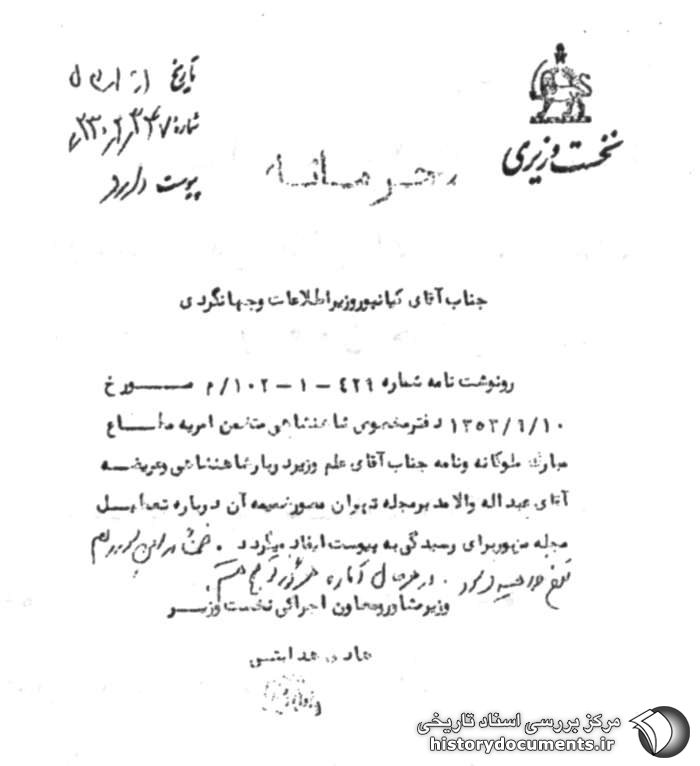 نخست وزیری
تاریخ
شماره
پیوست دارد
محرمانه
جناب آقای کیانپور وزیر اطلاعات و جهانگردی
رونوشت نامه شماره ۴۲۹-۱-۱۰۲/م مورخ
۱۳۵۳/۶/۱۰ دفتر مخصوص شاهنشاهی متضمن امریه مطاع
مبارک ملوکانه و نامه جناب آقای علم وزیر دربار شاهنشاهی و عریضه
آقای عبداله والا مدیر مجله تهران مصور ضمیمه آن درباره تعطیل
مجله مزبور برای رسیدگی به پیوست ایفاد میگردد.
وزیر مشاور و معاون اجرائی نخست وزیر
هادی هدایتی
مرکز بررسی اسناد تاریخی
historydocuments.ir